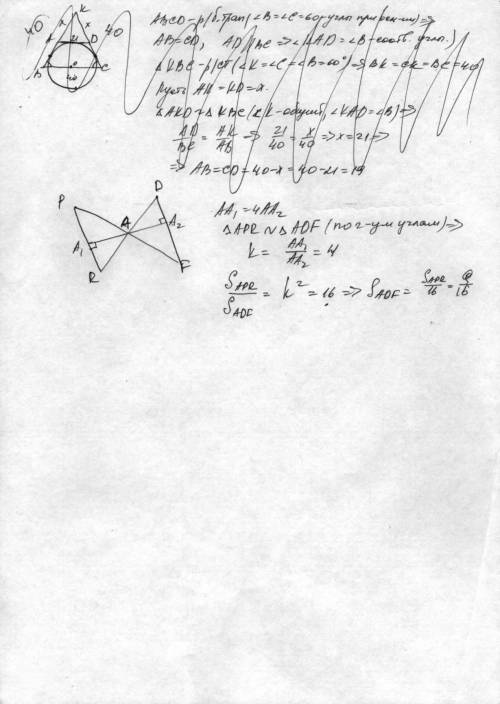 40
K
x x
40
A 21 D
B C
40
ABCD - р/б. трап (∠B=∠C=60 углы при осн-ии) ⇒
AB=CD, AD||BC ⇒ ∠KAD=∠B - соотв. угл.)
ΔKBC - р/ст (∠K=∠C=∠B=60°) ⇒ BK=CK=BC=40
Пусть AK=KD=x.
ΔAKD ~ ΔKBC (∠K - общий, ∠KAD=∠B) ⇒
AD/BC = AK/AB ⇒ 21/40 = x/40 ⇒ x=21 ⇒
⇒ AB=CD=40-x=40-21=19
P D
A
A1 A2
R F
AA1=4AA2
ΔAPR ~ ΔADF (по 2-ум углам) ⇒
k = AA1/AA2 = 4
SAPR/SADF = k² = 16 ⇒ SADF = SAPR/16 = Q/16